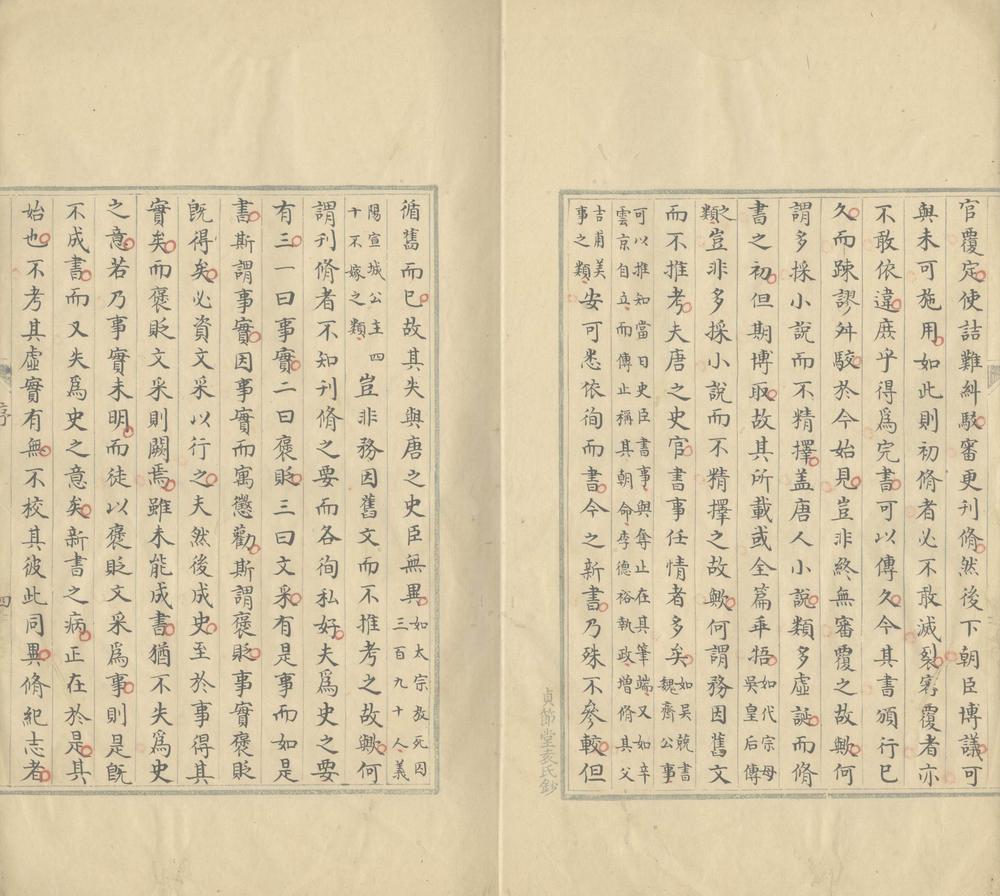 官覆定使詰難糾駁審更刊脩然後下朝臣博議可
與未可施用如此則初脩者必不敢滅裂審覆者亦
不敢依違庶乎得爲完書可以傳久今其書頒行已
久而踈謬舛駁於今始見豈非終無審覆之故歟何
謂多採小說而不精擇蓋唐人小說類多虛誕而脩
書之初但期博取故其所載或全篇乖牾如代宗母吳皇后傳
之類豈非多採小說而不精擇之故歟何謂務因舊文
而不推考夫唐之史官書事任情者多矣如吳兢書魏齊公事
可以推知當日史臣書事與奪止在其筆端又如辛
雲京自立而傳止稱其朝命李德裕執政增脩其父
吉甫美事之類安可悉依徇而書今之新書乃殊不參較但
循舊而已故其失與唐之史臣無異如太宗放死囚三百九十人義
陽宣城公主四十不嫁之類豈非務因舊文而不推考之故歟何
謂刊脩者不知刊脩之要而各徇私好夫爲史之要
有三一曰事實二曰褒貶三曰文采有是事而如是
書斯謂事實因事實而寓懲勸斯謂褒貶事實褒貶
旣得矣必資文采以行之夫然後成史至於事得其
實矣而褒貶文采則闕焉雖未能成書猶不失爲史
之意若乃事實未明而徒以褒貶文采爲事則是旣
不成書而又失爲史之意矣新書之病正在於是其
始也不考其虛實有無不校其彼此同異脩紀志者
序
四
貞節堂袁氏鈔